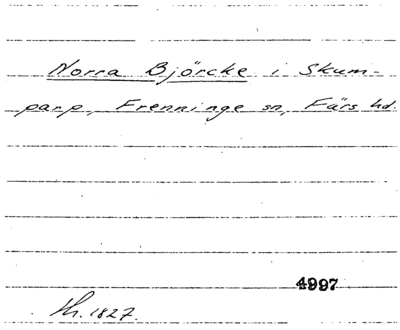 Norra Björcke i Skum-
parp, Frenninge sn, Färs hd.
4997
Hh. 1827.